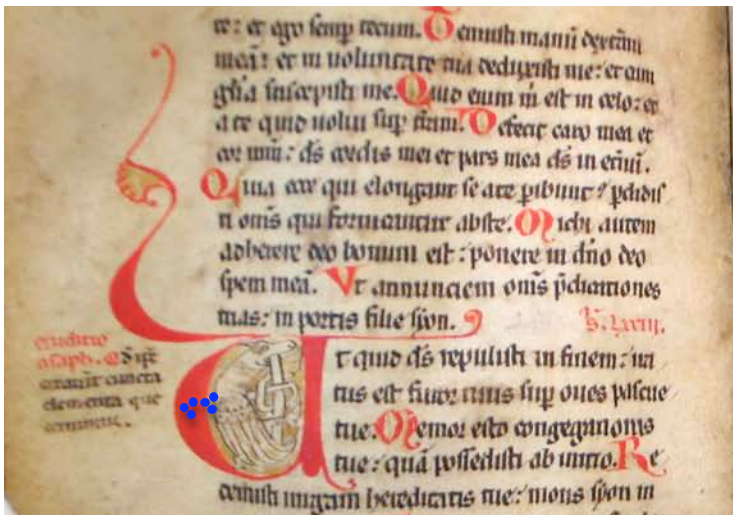 te: et ego semp̄ tecum. Tenuisti manū dextām
meā: et in uoluntate tua deduxisti me: et cum
gl̄ia suscepisti me. Quid enim m̄ est in celo: et
a te quid uolui sup̄ t̄ram. Defecit caro mea et
cor meū: ds̄ cordis mei et pars mea ds̄ in et̄nū.
Quia ecce qui elongant se a te ꝑibunt: ꝑdidis
ti om̄s qui fornicantur abste. Michi autem
adherere deo bonum est: ponere in dn̄o deo
spem meā. Vt annunciem om̄s p̄dicationes
tuas: in portis filie syon. ps. lxxiii.
eruditio
asaph. Qd
cuncta
elementa que
Ut quid ds̄ repulisti in finem: ira
tus est furor tuus sup̄ oues pascue
tue. Memor esto congregationis
tue: quā possedisti ab initio. Re
demisti uirgam hereditatis tue: mons syon in